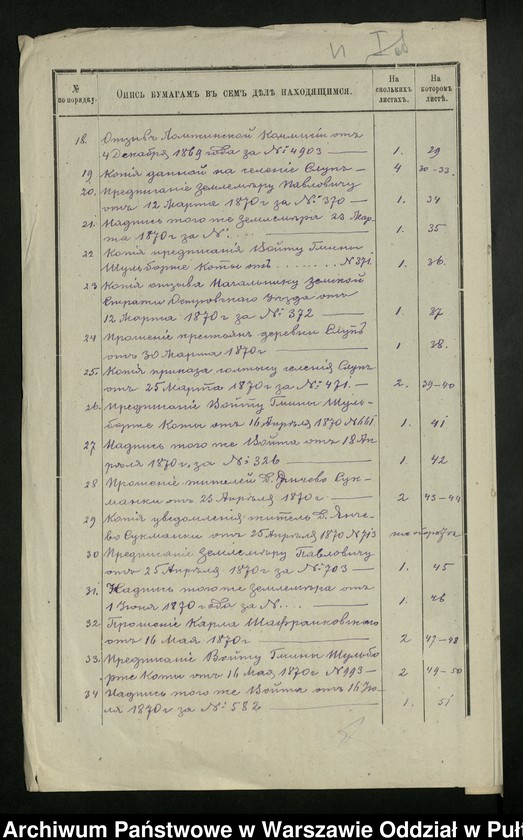 № по порядку.
Опись бумагамъ въ семъ дѣлѣ находящимся.
На сколькихъ листахъ.
На которомъ листѣ.
18. Отзывъ Ломжинской Коммисіи отъ
4 Декабря 1869 года за № 4903 — 1. 29
19 Копія данной на селеніе Слупъ — 4 30-33.
20. Предписаніе Землемѣру Павловичу
отъ 12 Марта 1870 г за № 370 — 1. 34
21. Надпись того же Землемѣра 23 Мар-
та 1870 г за №. . . . 1. 35
22 Копія предписанія Войту Гмины
Шульборже Коты отъ . . . . . . . . № 371. 1. 36.
23 Копія отзыва Начальнику Земской
Стражи Островского Уѣзда отъ
12 Марта 1870 г за № 372 — 1. 37
24 Прошеніе крестьянъ деревни Слупъ
отъ 30 Марта 1870 г — 1 38.
25. Копія приказа солтысу селенія Слупъ
отъ 25 Марта 1870 г за № 471. — 2. 39-40
26. Предписаніе Войту Гмины Шуль-
борже Коты отъ 16 Апрѣля 1870 № 661. 1. 41
27 Надпись того же Войта отъ 18 Ап-
рѣля 1870 г. за № 326 — 1. 42
28 Прошеніе жителей д. Янчево Сук-
манки отъ 23 Апрѣля 1870 г. — 2 43-44
29 Копія уведомленія житель д. Янче-
во Сукманки отъ 25 Апрѣля 1870 № 713 на обороте
30 Предписаніе Землемѣру Павловичу
отъ 25 Апрѣля 1870 г за № 703 — 1. 45
31. Надпись того же Землемѣра отъ
1 Июня 1870 года за №. . . . — 1. 46
32. Прошеніе Карла Шафранковского
отъ 16 Мая 1870 г — 2 47-48
33. Предписаніе Войту Гмины Шульбо-
рже Коты отъ 16 Мая 1870 г № 993 — 2 49-50
34 Надпись того же Войта отъ 16 Ию-
ля 1870 г за № 582 — 1. 51
Archiwum Państwowe w Warszawie Oddział w Puł